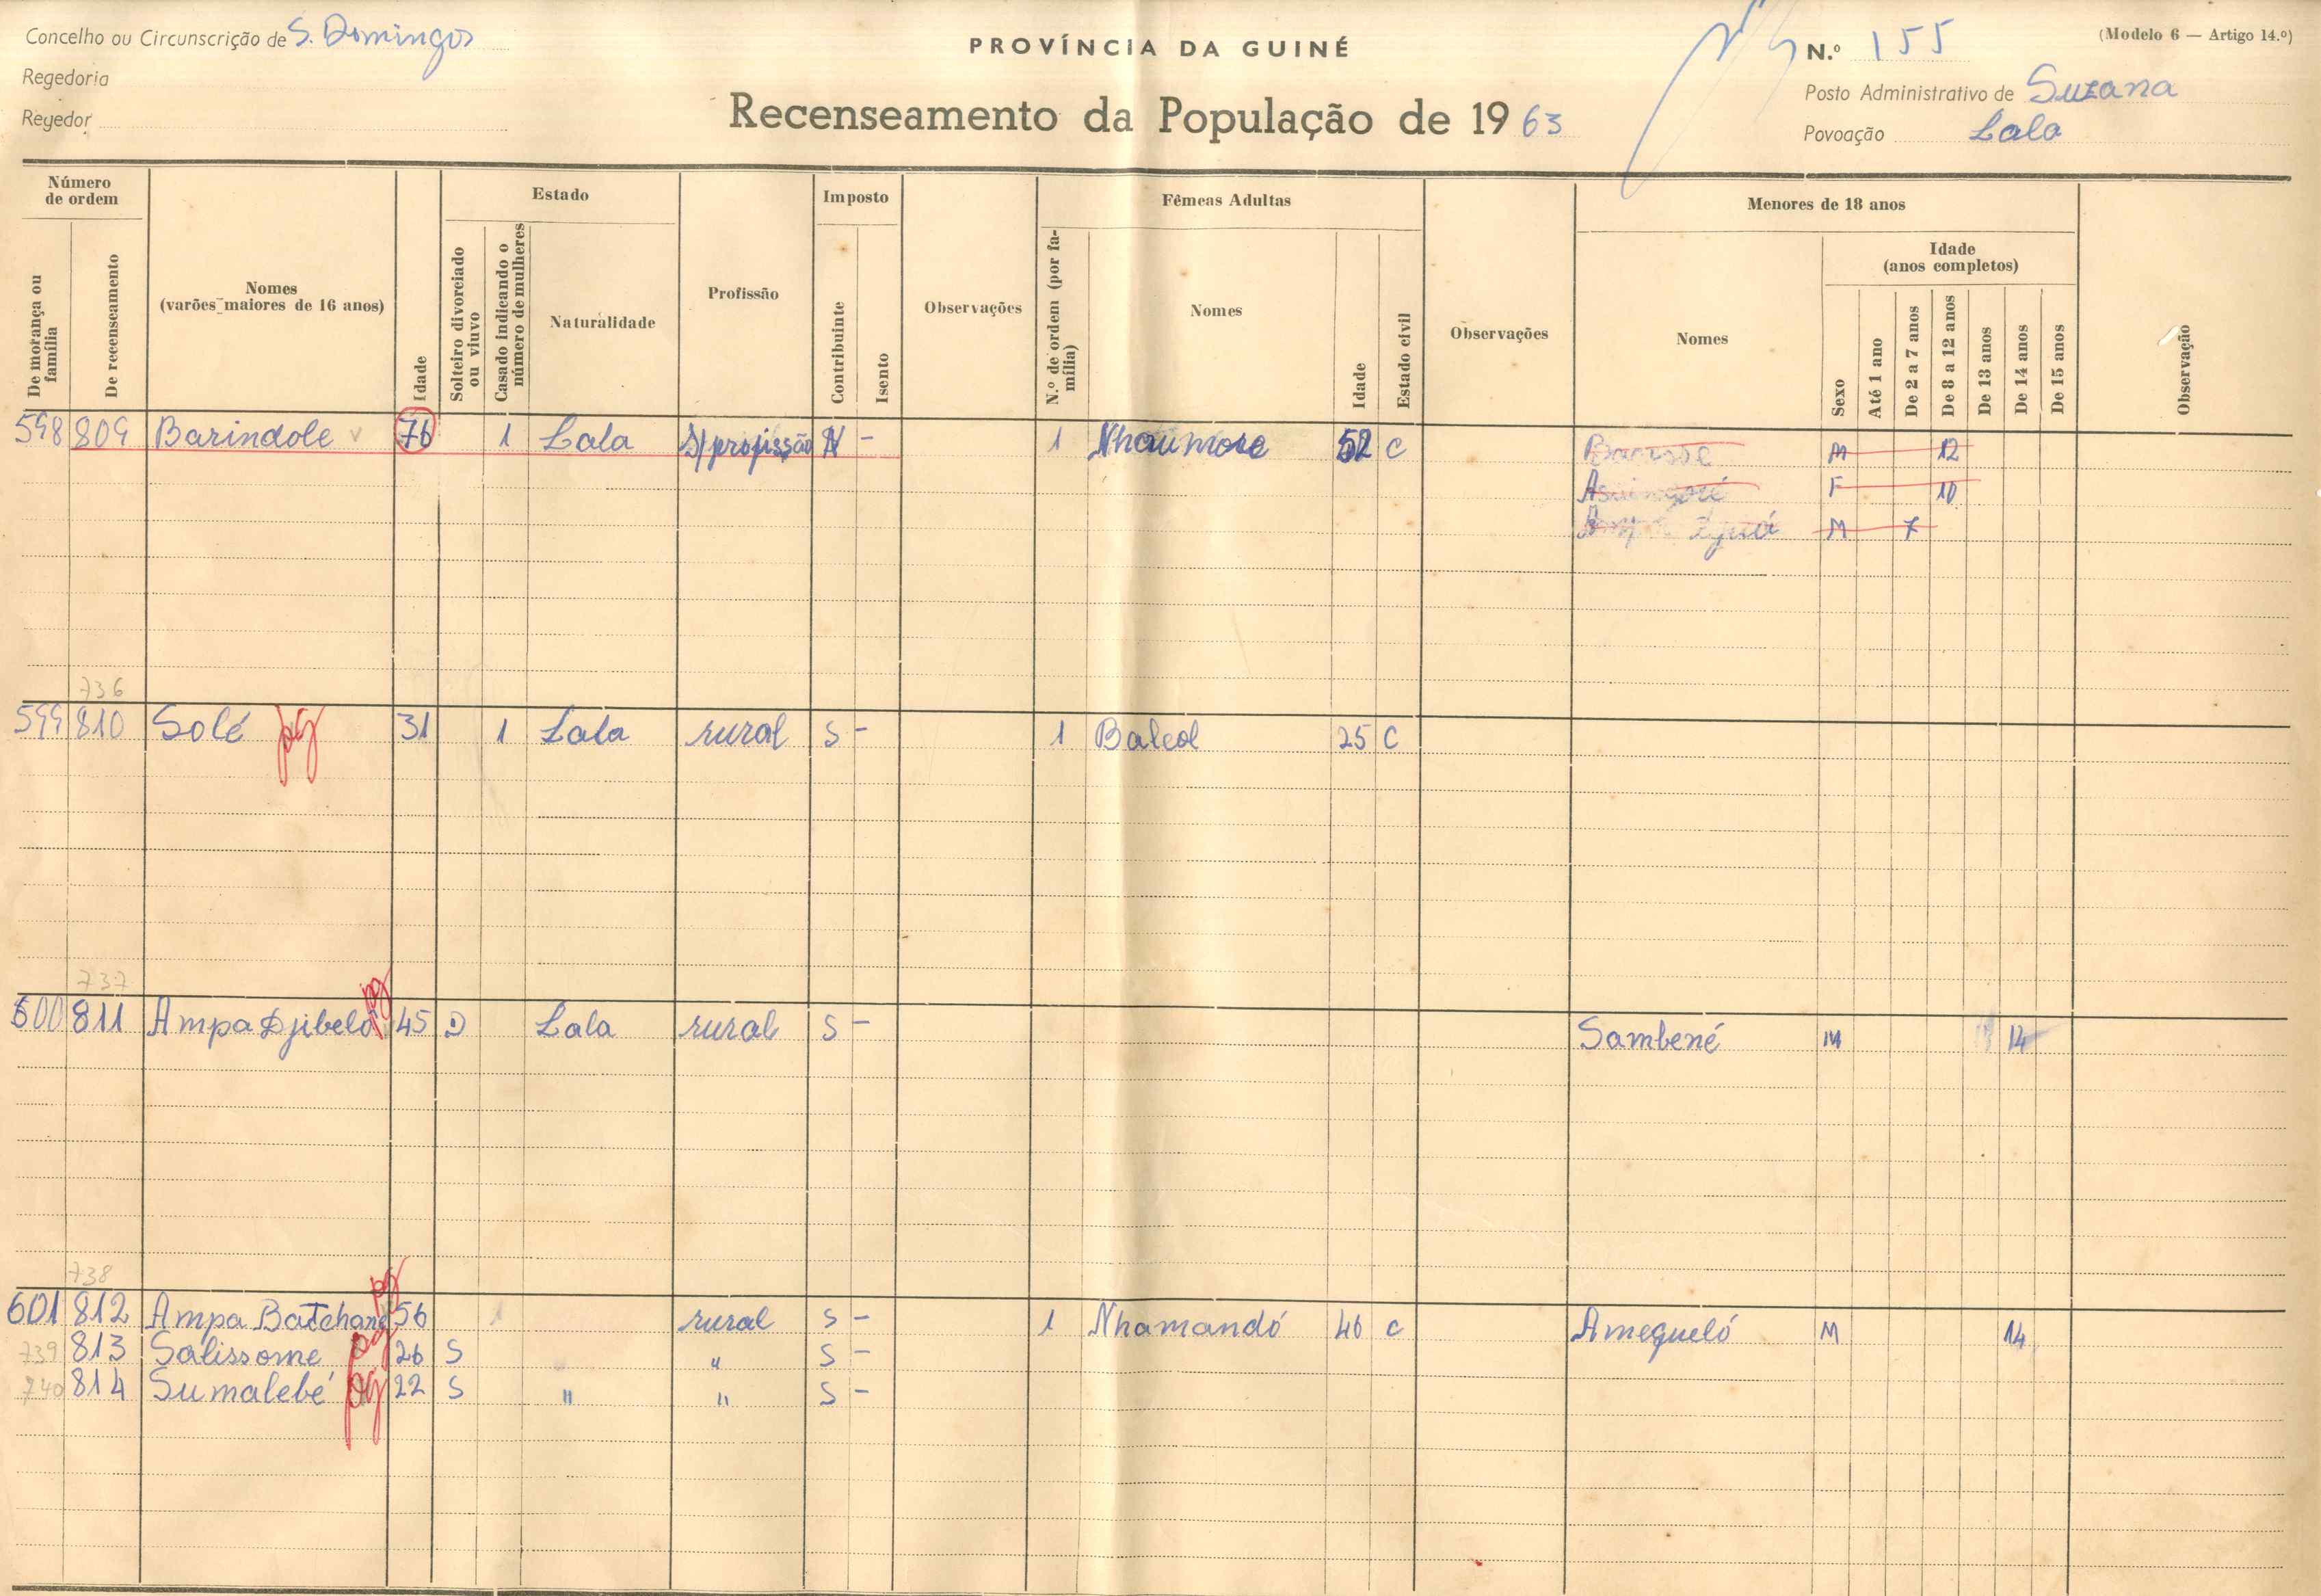 Concelho ou Circunscrição de S. Domingos
Regedoria
Regedor
PROVÍNCIA DA GUINÉ
Recenseamento da População de 1963
(Modelo 6 — Artigo 14.º)
N.º 155
Posto Administrativo de Suzana
Povoação Lala
Número de ordem
De morança ou família
De recenseamento
Nomes
(varões maiores de 16 anos)
Idade
Estado
Solteiro divorciado ou viuvo
Casado indicando o número de mulheres
Naturalidade
Profissão
Imposto
Contribuinte
Isento
Observações
Fêmeas Adultas
N.º de ordem (por família)
Nomes
Idade
Estado civil
Observações
Menores de 18 anos
Nomes
Sexo
Idade
(anos completos)
Até 1 ano
De 2 a 7 anos
De 8 a 12 anos
De 13 anos
De 14 anos
De 15 anos
Observação
598 809 Barindole 76 1 Lala S/profissão N - 1 52 C M 12
F 10
M 7
736
599 810 Solé pg 31 1 Lala rural S - 1 Baleol 25 C
737
600 811 Ampa Djibeló pg 45 D Lala rural S - Sambené M 14
738
601 812 Ampa Batchané pg 56 1 rural S - 1 Nhamandó 46 C Amegueló M 14
739 813 Salissome pg 26 S " S -
740 814 Sumalebé pg 22 S " " S -